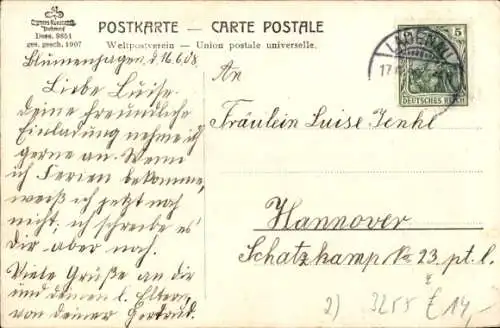 POSTKARTE — CARTE POSTALE
Weltpostverein — Union postale universelle.
Dess. 9851
ges. gesch. 1907
5
DEUTSCHES REICH
17
Blumenhagen, d. 16.6.08.
Liebe Luise.
Deine freundliche
Einladung nehme ich
gerne an. Wenn
ich Ferien bekomme,
weiß ich jetzt noch
nicht; ich schreibe es
Dir aber noch.
Viele Grüße an dir
und deinen l. Eltern,
von deiner Gertrud.
An
Fräulein Luise Jenkl
Hannover
Schatzkamp No 23. pt. l.
2) 3255 £ 14,-